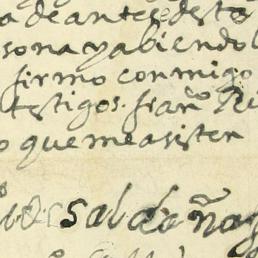 a de antes desto
sona y abiendo
firmo conmigo
testigos. franco
o que me asisten
saldaña